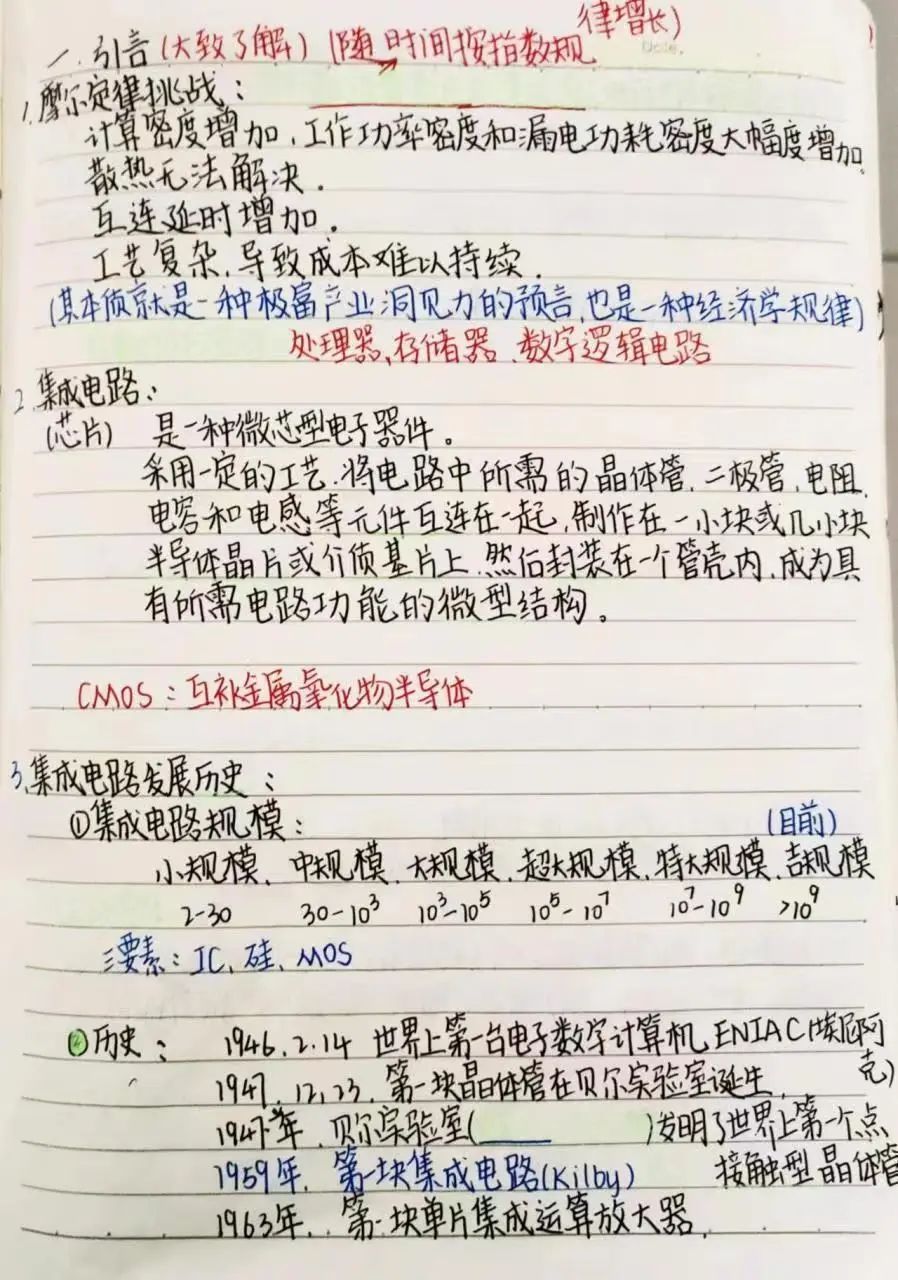 一、引言(大致了解) (随时间按指数规律增长)
Date.
1.摩尔定律挑战:
计算密度增加,工作功率密度和漏电功耗密度大幅度增加。
散热无法解决.
互连延时增加.
工艺复杂,导致成本难以持续.
(其本质就是一种极富产业洞见力的预言,也是一种经济学规律)
处理器,存储器、数字逻辑电路
2.集成电路:
(芯片) 是一种微芯型电子器件。
采用一定的工艺.将电路中所需的晶体管,二极管,电阻,
电容和电感等元件互连在一起,制作在一小块或几小块
半导体晶片或介质基片上,然后封装在一个管壳内,成为具
有所需电路功能的微型结构。
CMOS:互补金属氧化物半导体
3.集成电路发展历史:
①集成电路规模: (目前)
小规模、中规模、大规模、超大规模、特大规模、吉规模
2-30 30-10³ 10³-10⁵ 10⁵-10⁷ 10⁷-10⁹ >10⁹
三要素:IC、硅、MOS
②历史: 1946.2.14 世界上第一台电子数字计算机 ENIAC(埃尼阿克)
1947.12.23.第一块晶体管在贝尔实验室诞生.
1947年.贝尔实验室( )发明了世界上第一个点接触型晶体管
1959年,第一块集成电路(Kilby)
1963年.第一块单片集成运算放大器.